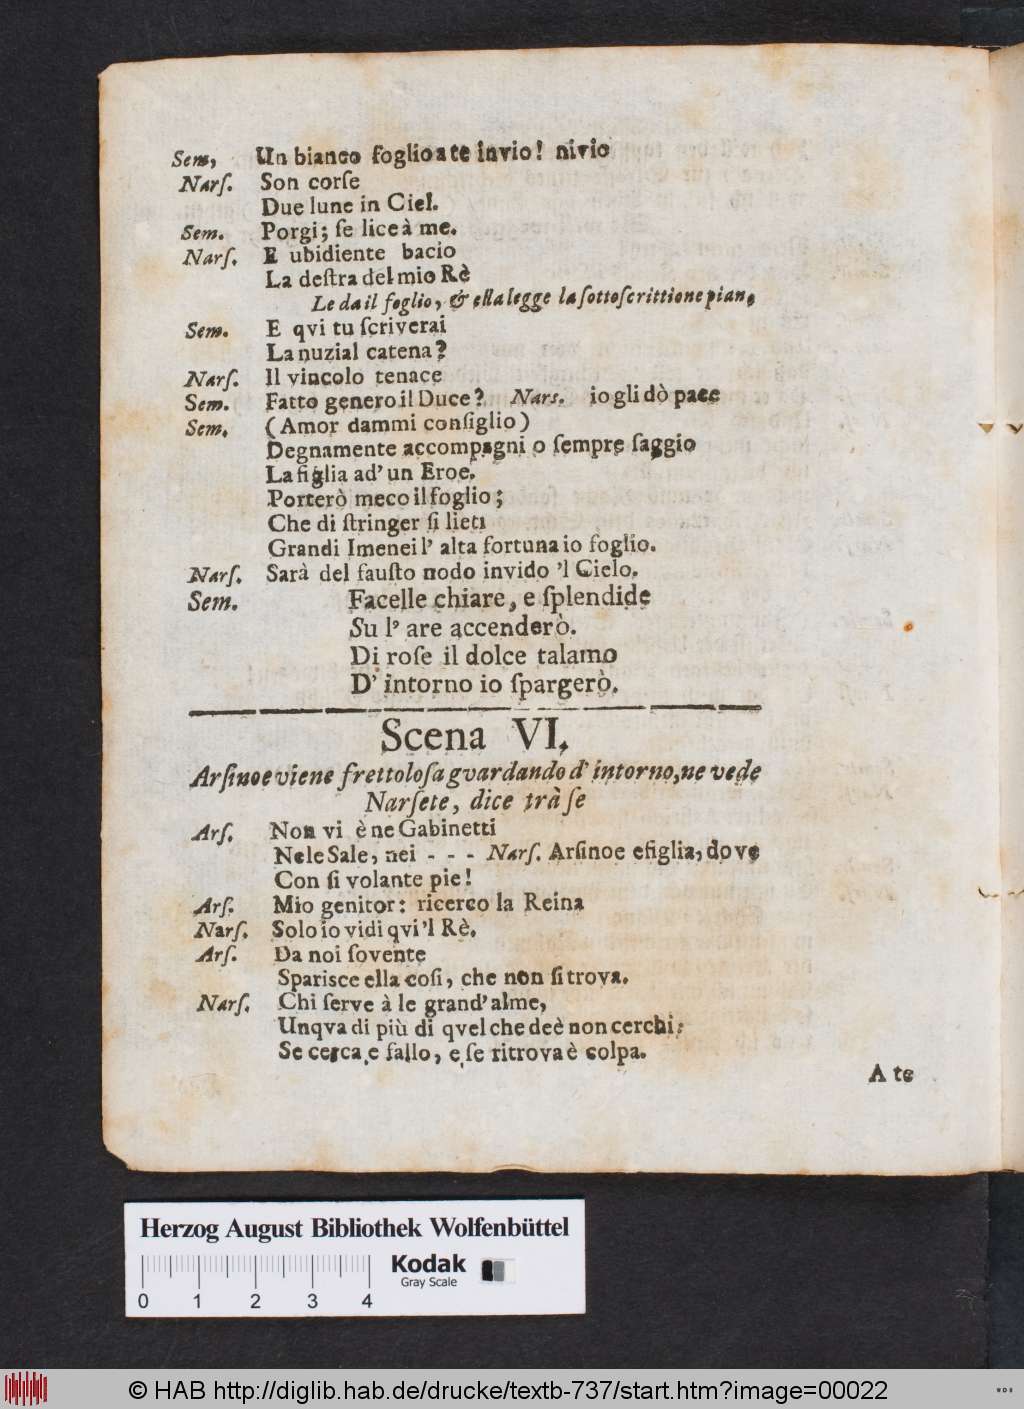 Sem, Un bianco foglio a te invio! nivio
Narſ. Son corſe
Due lune in Ciel.
Sem. Porgi; ſe lice à me.
Narſ. E ubidiente bacio
La deſtra del mio Rè
Le da il foglio, & ella legge la ſottoſcrittione pian,
Sem. E qvi tu ſcriverai
La nuzial catena?
Narſ. Il vincolo tenace
Sem. Fatto genero il Duce? Nars. io gli dò pace
Sem. (Amor dammi conſiglio)
Degnamente accompagni o ſempre ſaggio
La figlia ad' un Eroe.
Porterò meco il foglio;
Che di ſtringer ſi lieti
Grandi Imenei l' alta fortuna io foglio.
Narſ. Sarà del fauſto nodo invido 'l Cielo.
Sem. Facelle chiare, e ſplendide
Su l' are accenderò.
Di roſe il dolce talamo
D' intorno io ſpargerò.
Scena VI.
Arſinoe viene frettoloſa gvardando d' intorno, ne vede
Narſete, dice trà ſe
Arſ. Non vi è ne Gabinetti
Nele Sale, nei - - - Narſ. Arſinoe efiglia, dove
Con ſi volante pie!
Arſ. Mio genitor: ricerco la Reina
Narſ. Solo io vidi qvi 'l Rè.
Arſ. Da noi ſovente
Spariſce ella coſi, che non ſi trova.
Narſ. Chi ſerve à le grand' alme,
Unqva di più di qvel che deè non cerchi:
Se cerca, e fallo, e, ſe ritrova è colpa.
A te
Herzog August Bibliothek Wolfenbüttel
Kodak
Gray Scale
0 1 2 3 4
© HAB http://diglib.hab.de/drucke/textb-737/start.htm?image=00022